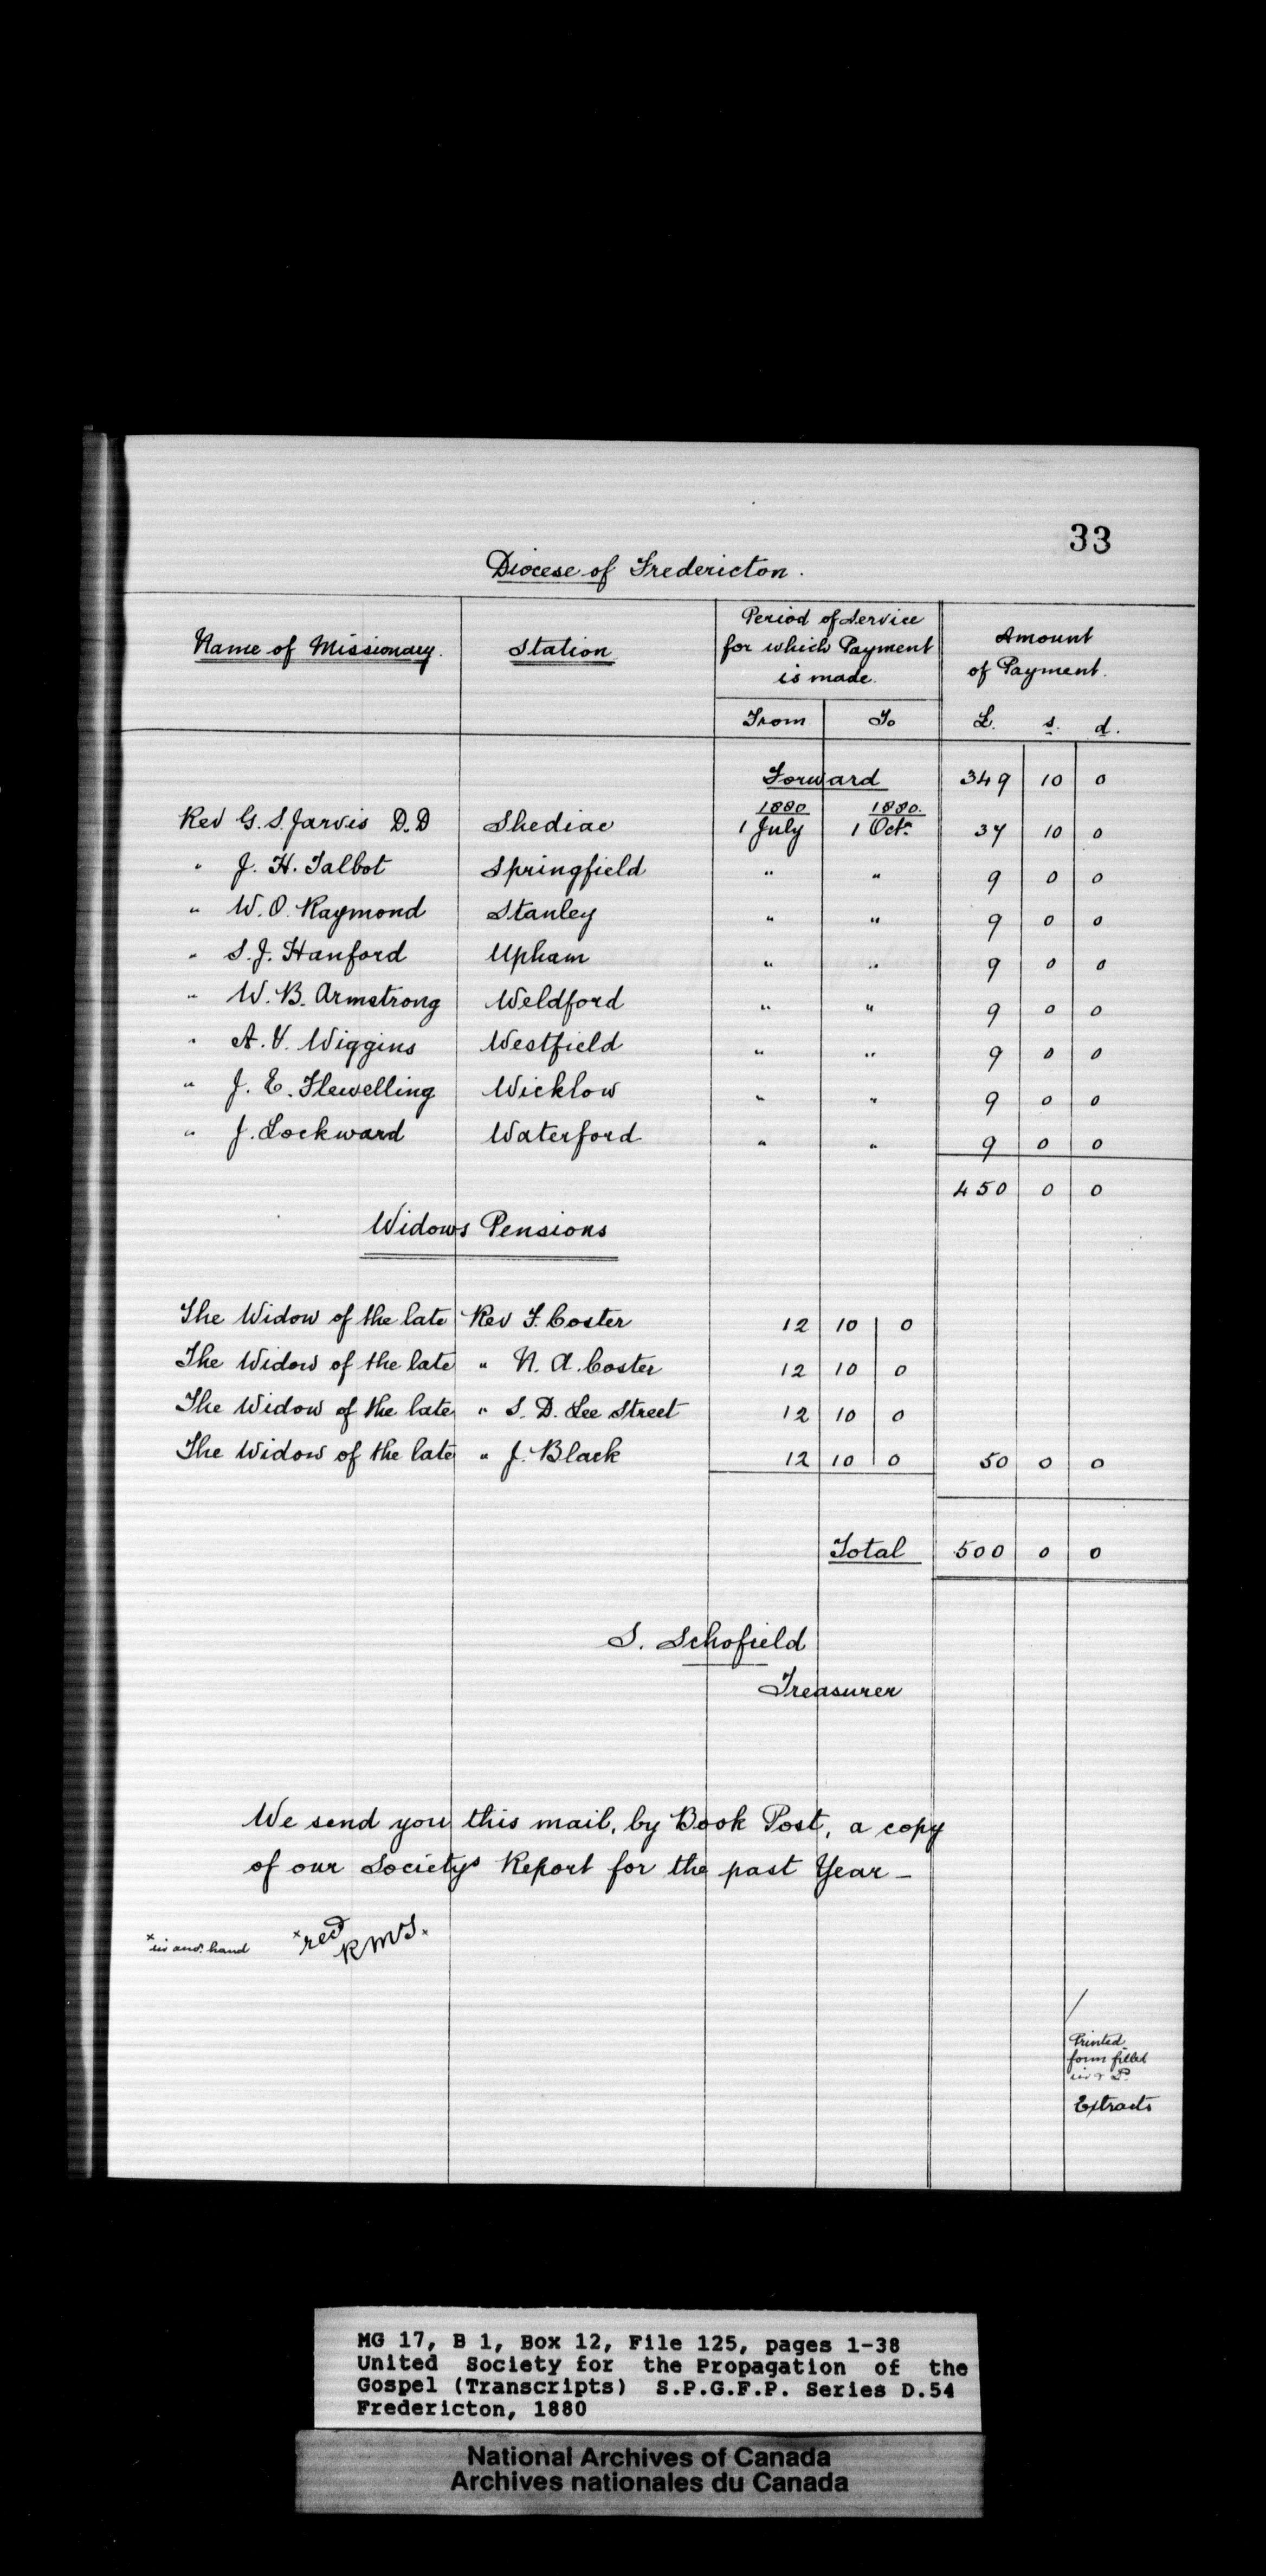 33
Diocese of Fredericton.
Name of Missionary. Station Period of Service for which Payment is made. Amount of Payment.
From To £. s. d.
Forward 349 10 0
1880 1880.
Rev G. S. Jarvis D.D Shediac 1 July 1 Octr 37 10 0
" J. H. Talbot Springfield " " 9 0 0
" W. O. Raymond Stanley " " 9 0 0
" S. J. Hanford Upham " " 9 0 0
" W. B. Armstrong Weldford " " 9 0 0
" A. V. Wiggins Westfield " " 9 0 0
" J. E. Flewelling Wicklow " " 9 0 0
" J. Lockward Waterford " " 9 0 0
450 0 0
Widows Pensions
The Widow of the late Rev F. Coster 12 10 0
The Widow of the late " N. A. Coster 12 10 0
The Widow of the late " S. D. Lee Street 12 10 0
The Widow of the late " J. Black 12 10 0 50 0 0
Total 500 0 0
S. Schofield
Treasurer
We send you this mail, by Book Post, a copy
of our Societys Report for the past Year –
x in anor. hand
x recd
RMS. x
Printed
form filled
in &
Extracts
MG 17, B 1, Box 12, File 125, pages 1-38
United Society for the Propagation of the
Gospel (Transcripts) S.P.G.F.P. Series D.54
Fredericton, 1880
National Archives of Canada
Archives nationales du Canada